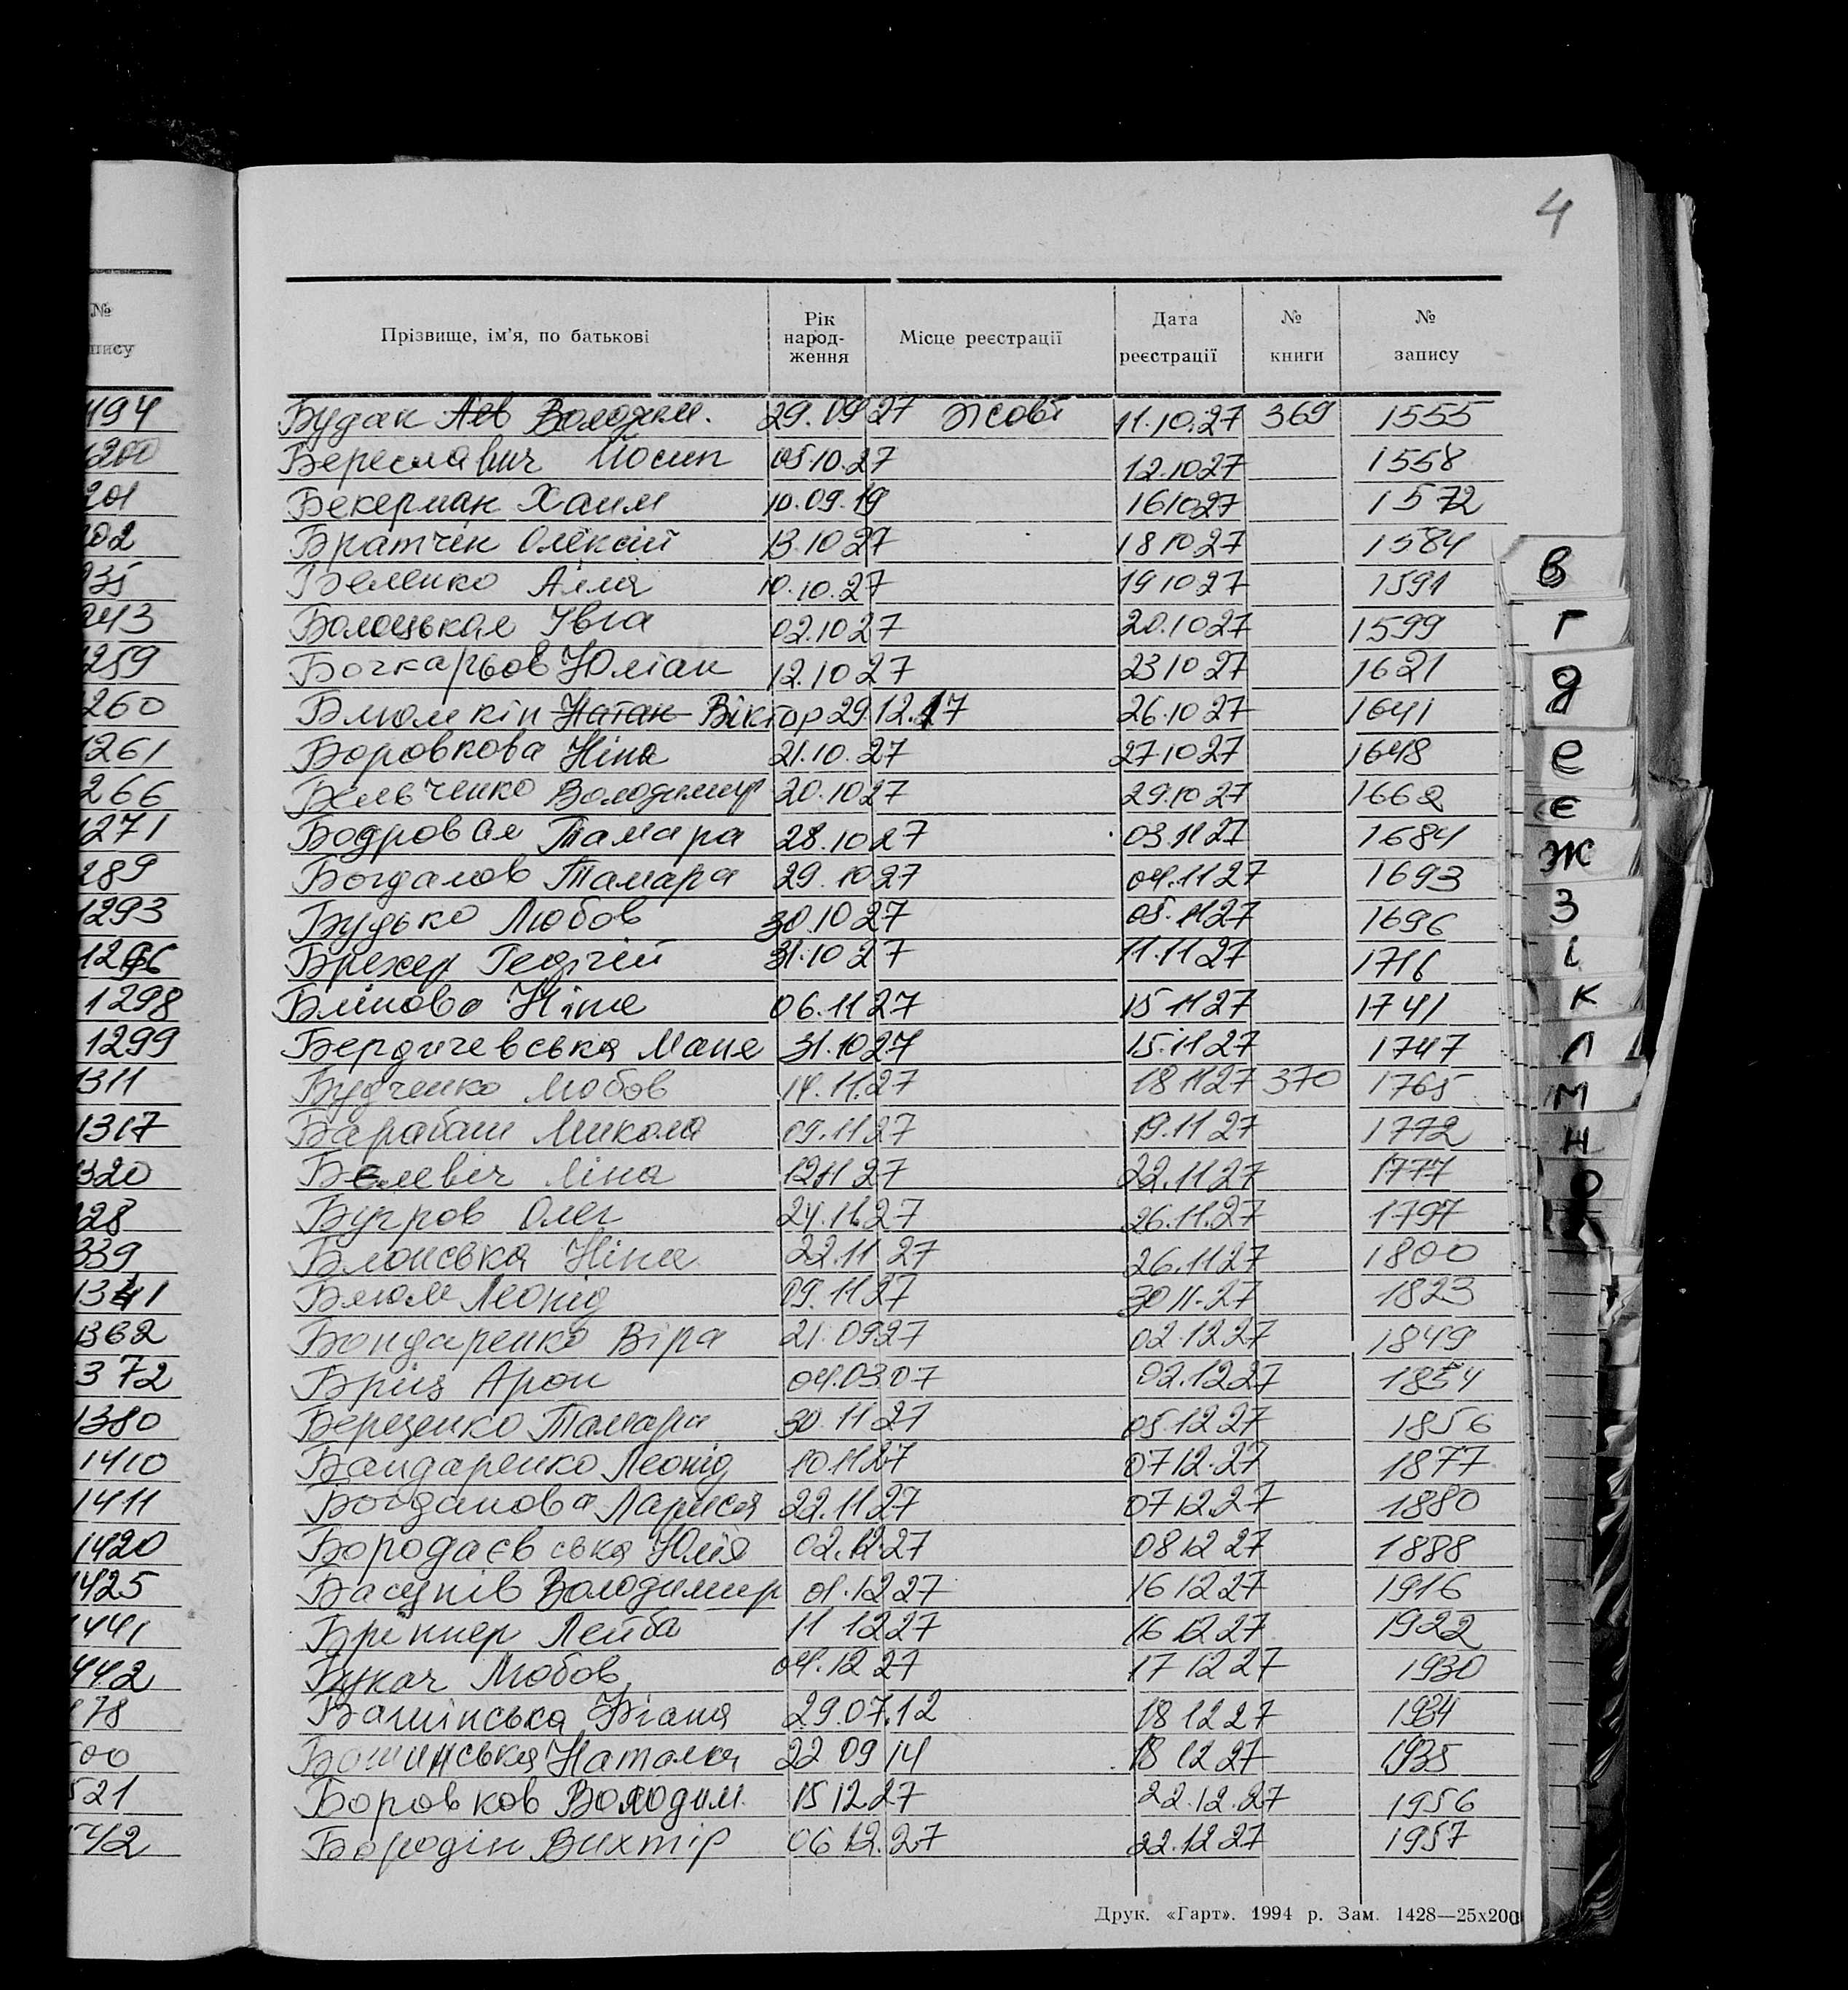 4
№
пису
Прізвище, ім'я, по батькові
Рік народ-ження
Місце реєстрації
Дата реєстрації
№ книги
№ запису
194
1200
201
202
935
943
1259
1260
1261
1266
1271
1289
1293
1296
1298
1299
1311
1317
1320
328
339
1341
1362
1372
1380
1410
1411
1420
1425
441
442
478
500
521
542
Будак Лев Володим. 29.09.27 Жовт 11.10.27 369 1555
Береславич Йосип 05.10.27 12.10 27 1558
Бекерман Хаим 10.09.19 16 10 27 1572
Братчін Олексій 13.10 27 18 10 27 1584
Беленко Алла 10.10.27 19 10 27 1591
Болоцькая Івга 02.10 27 20.10 27 1599
Бочкарьов Юліан 12.10 27 23 10 27 1621
Блюмкін Натан Віктор 29.12.17 26.10 27 1641
Боровкова Ніна 21.10.27 27 10 27 1648
Бельченко Володимир 20.10 27 29.10 27 1662
Бодровая Тамара 28.10 27 03.11 27 1684
Богдалов Тамара 29.10 27 04.11 27 1693
Будько Любов 30.10 27 05.11 27 1696
Брехер Георгій 31.10 27 11.11 27 1716
Блінова Ніна 06.11 27 15 11 27 1741
Бердичевська Маня 31.10 27 15.11 27 1747
Будченко Любов 14.11.27 18 11 27 370 1765
Барабаш Микола 09.11 27 19.11 27 1772
Белевіч Ліна 12 11 27 22.11 27 1777
Бугров Олег 24.11.27 26.11.27 1797
Блонська Ніна 22.11 27 26.11 27 1800
Блюм Леонід 09.11 27 30 11.27 1823
Бондаренко Віра 21.09 27 02.12 27 1849
Бриц Арон 04.03 07 02.12 27 1854
Берценко Тамара 30.11 27 05.12 27 1856
Бандаренко Леонід 10.11 27 07 12.27 1877
Богданова Лариса 22.11 27 07 12.27 1880
Бородаєвська Юлія 02.12 27 08 12 27 1888
Басунів Володимир 01.12 27 16 12 27 1916
Брікнер Лейба 11 12 27 16 12 27 1922
Букач Любов 04.12 27 17 12 27 1930
Башинська 29.07.12 18 12 27 1934
Башинська Наталія 22 09 14 18 12 27 1935
Боровков Володим. 15 12 27 22.12.27 1956
Бородін Вихтір 06 12.27 22.12 27 1957
В
Г
Д
Е
Є
Ж
З
І
К
Л
М
Н
О
Друк. «Гарт». 1994 р. Зам. 1428—25х200